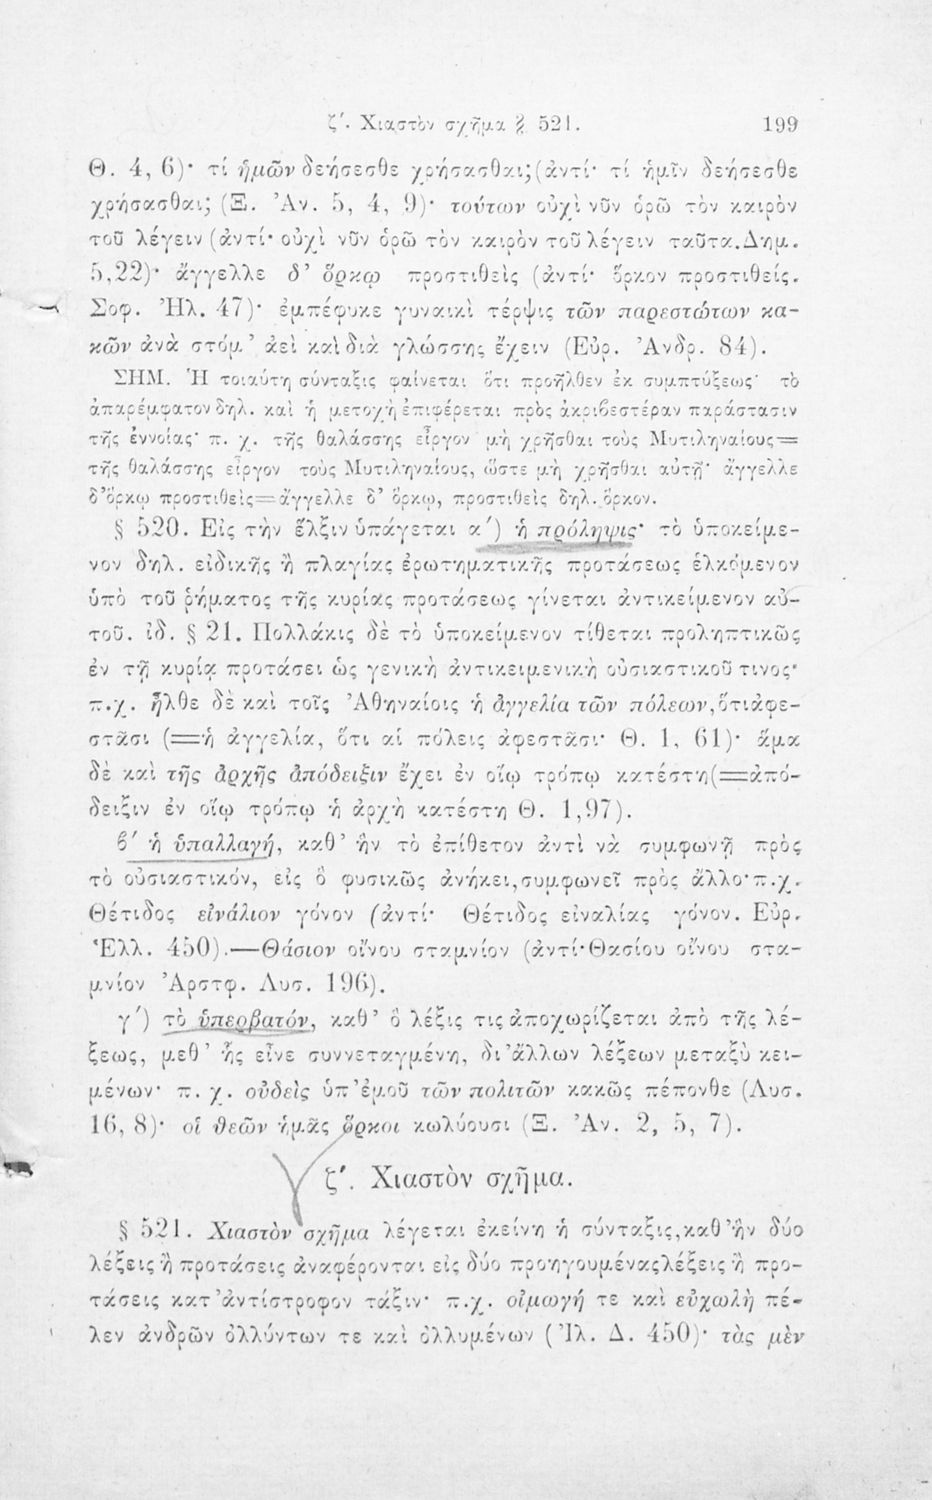 ζ'. Χιαστὸν σχῆμα § 521. 199
Θ. 4, 6)· τί ἡμῶν δεήσεσθε χρήσασθαι;(ἀντί· τί ἡμῖν δεήσεσθε
χρήσασθαι; (Ξ. Ἀν. 5, 4, 9)· τούτων οὐχὶ νῦν ὁρῶ τὸν καιρὸν
τοῦ λέγειν (ἀντί· οὐχὶ νῦν ὁρῶ τὸν καιρὸν τοῦ λέγειν ταῦτα.Δημ.
5,22)· ἄγγελλε δ' ὅρκῳ προστιθεὶς (ἀντί· ὅρκον προστιθείς.
Σοφ. Ἠλ. 47)· ἐμπέφυκε γυναικὶ τέρψις τῶν παρεστώτων κα-
κῶν ἀνὰ στόμ' ἀεὶ καὶ διὰ γλώσσης ἔχειν (Εὐρ. Ἀνδρ. 84).
ΣΗΜ. Ἡ τοιαύτη σύνταξις φαίνεται ὅτι προῆλθεν ἐκ συμπτύξεως· τὸ
ἀπαρέμφατον δηλ. καὶ ἡ μετοχὴ ἐπιφέρεται πρὸς ἀκριβεστέραν παράστασιν
τῆς ἐννοίας· π. χ. τῆς θαλάσσης εἶργον μὴ χρῆσθαι τοὺς Μυτιληναίους=
τῆς θαλάσσης εἶργον τοὺς Μυτιληναίους, ὥστε μὴ χρῆσθαι αὐτῇ· ἄγγελλε
δ' ὅρκῳ προστιθεὶς=ἄγγελλε δ' ὅρκῳ, προστιθεὶς δηλ. ὅρκον.
§ 520. Εἰς τὴν ἕλξιν ὑπάγεται α') ἡ πρόληψις· τὸ ὑποκείμε-
νον δηλ. εἰδικῆς ἢ πλαγίας ἐρωτηματικῆς προτάσεως ἑλκόμενον
ὑπὸ τοῦ ῥήματος τῆς κυρίας προτάσεως γίνεται ἀντικείμενον αὐ-
τοῦ. ἰδ. § 21. Πολλάκις δὲ τὸ ὑποκείμενον τίθεται προληπτικῶς
ἐν τῇ κυρίᾳ προτάσει ὡς γενικὴ ἀντικειμενικὴ οὐσιαστικοῦ τινος·
π.χ. ἦλθε δὲ καὶ τοῖς Ἀθηναίοις ἡ ἀγγελία τῶν πόλεων,ὅτι ἀφε-
στᾶσι (=ἡ ἀγγελία, ὅτι αἱ πόλεις ἀφεστᾶσι· Θ. 1, 61)· ἅμα
δὲ καὶ τῆς ἀρχῆς ἀπόδειξιν ἔχει ἐν οἵῳ τρόπῳ κατέστη(=ἀπό-
δειξιν ἐν οἵῳ τρόπῳ ἡ ἀρχὴ κατέστη Θ. 1,97).
β' ἡ ὑπαλλαγή, καθ' ἣν τὸ ἐπίθετον ἀντὶ νὰ συμφωνῇ πρὸς
τὸ οὐσιαστικόν, εἰς ὃ φυσικῶς ἀνήκει,συμφωνεῖ πρὸς ἄλλο·π.χ.
Θέτιδος εἰνάλιον γόνον (ἀντί· Θέτιδος εἰναλίας γόνον. Εὐρ.
Ἑλλ. 450).—Θάσιον οἴνου σταμνίον (ἀντί·Θασίου οἴνου στα-
μνίον Ἀρστφ. Λυσ. 196).
γ') τὸ ὑπερβατόν, καθ' ὃ λέξις τις ἀποχωρίζεται ἀπὸ τῆς λέ-
ξεως, μεθ' ἧς εἶνε συντεταγμένη, δι' ἄλλων λέξεων μεταξὺ κει-
μένων· π. χ. οὐδεὶς ὑπ' ἐμοῦ τῶν πολιτῶν κακῶς πέπονθε (Λυσ.
16, 8)· οἱ θεῶν ἡμᾶς ὅρκοι κωλύουσι (Ξ. Ἀν. 2, 5, 7).
ζ'. Χιαστὸν σχῆμα.
§ 521. Χιαστὸν σχῆμα λέγεται ἐκείνη ἡ σύνταξις,καθ' ἣν δύο
λέξεις ἢ προτάσεις ἀναφέρονται εἰς δύο προηγουμένας λέξεις ἢ προ-
τάσεις κατ' ἀντίστροφον τάξιν· π.χ. οἰμωγή τε καὶ εὐχωλὴ πέ-
λεν ἀνδρῶν ὀλλύντων τε καὶ ὀλλυμένων (Ἰλ. Δ. 450)· τὰς μὲν